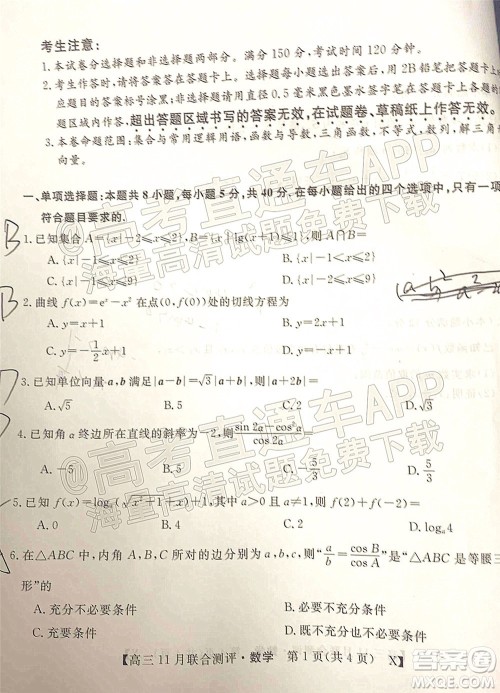 考生注意:
1.本试卷分选择题和非选择题两部分.满分 150 分,考试时间 120 分钟.
2.考生作答时,请将答案答在答题卡上.选择题每小题选出答案后,用 2B 铅笔把答题卡上
超出答题区域书写的答案无效,在试题卷、草稿纸上作答无效.
3.本卷命题范围:集合与常用逻辑用语、函数与导数、三角函数、不等式、
向量.
一、单项选择题:本题共 8 小题,每小题 5 分,共 40 分.在每小题给出的四个选项中,只有一项
符合题目要求的.
B
1.已知集合 A={x|-2≤x≤2},B={x|lg(x+1)≤1},则 A∩B=
A.{x|-1≤x≤2} B.{x|-1<x≤2}
C.{x|-2≤x≤9} D.{x|-2≤x≤9}
B
2.曲线 f(x)=eˣ-x² 在点(0,f(0))处的切线方程为
A.y=x+1
B.y=-1/2x+1
3.已知单位向量 a,b 满足|a-b|=√3|a+b|,则|a+2b|=
A.√5 B.2 C.√3 D.√2
4.已知角 α 终边所在直线的斜率为-2,则(sin 2α-cos²α)/cos²α=
A.-5 B.-5/3 C. D.5/3
5.已知 f(x)=logₐ(√(x²+1)+x),其中 a>0 且 a≠1,则
A.0 B.1 C.2 D.logₐ4
6.在△ABC 中,内角 A,B,C 所对的边分别为 a,b,c,则"a/b=cos B/cos A"是"△ABC 是等腰三
形"的
A.充分不必要条件 B.必要不充分条件
C.充要条件 D.既不充分也不必要条件
【高三 11 月联合测评·数学 第 1 页(共 4 页) X】
@高考直通车APP
海量高清试题免费下载
@高考直通车APP
海量高清试题免费下载